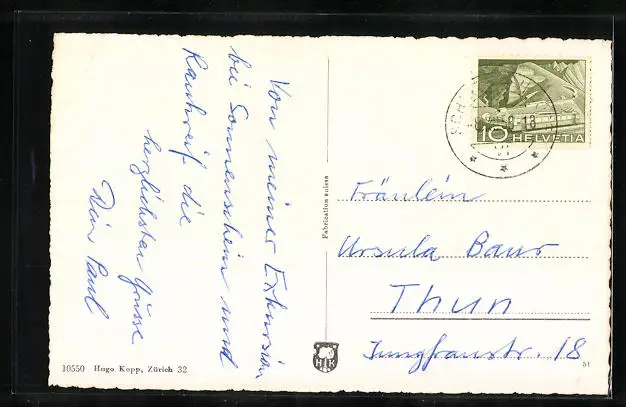 Von meiner Exkursion
bei Sonnenschein und
Rauhreif die
herzlichsten Grüsse
Dein Paul
10550 Hugo Kopp, Zürich 32
Fabrication suisse
HK
10 HELVETIA
Fräulein
Ursula Baur
Thun
Jungfraustr. 18
51